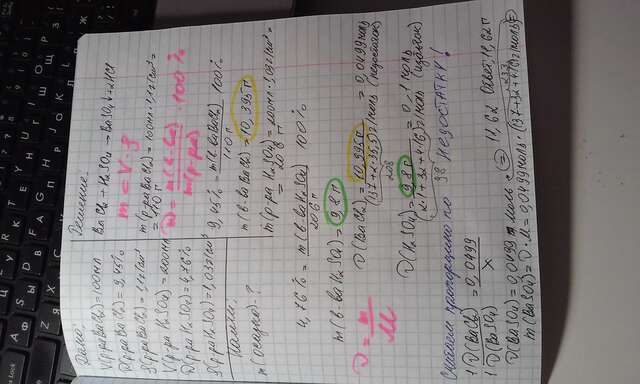 Дано:
V(р-раBaCl₂)=100мл
ω(р-раBaCl₂)=9,45%
ρ(р-раBaCl₂)=1,1г/см³
V(р-раH₂SO₄)=200мл
ω(р-раH₂SO₄)=4,76%
ρ(р-раH₂SO₄)=1,03г/см³
Найти:
m(осадка)-?
Решение:
BaCl₂ + H₂SO₄ → BaSO₄↓+2HCl
m = V·ρ
m(р-раBaCl₂)=100мл·1,1г/см³=
=110г
ω = m(в-ва)/m(р-ра) · 100%
9,45% = m(в-ваBaCl₂)/110г 100%
m(в-ваBaCl₂)=10,395г
m(р-ра H₂SO₄)=200мл·1,03г/см³=
= 206г
4,76% = m(в-ваH₂SO₄)/206г 100%
m(в-ваH₂SO₄)=9,8г
ν = m/M
ν(BaCl₂)=10,395г/(137+2·35,5)г/моль = 0,0499моль
208 (недостаток)
ν(H₂SO₄)=9,8г/(2·1+32+4·16)г/моль = 0,1моль
98 (избыток)
Считаем пропорцию по НЕДОСТАТКУ!
1ν(BaCl₂)/1ν(BaSO₄) = 0,0499/x
ν(BaSO₄)=0,0499 моль
= 11,62 Ответ: 11,62г
233
m(BaSO₄)=ν·M=0,0499моль·(137+32+4·16)г/моль=